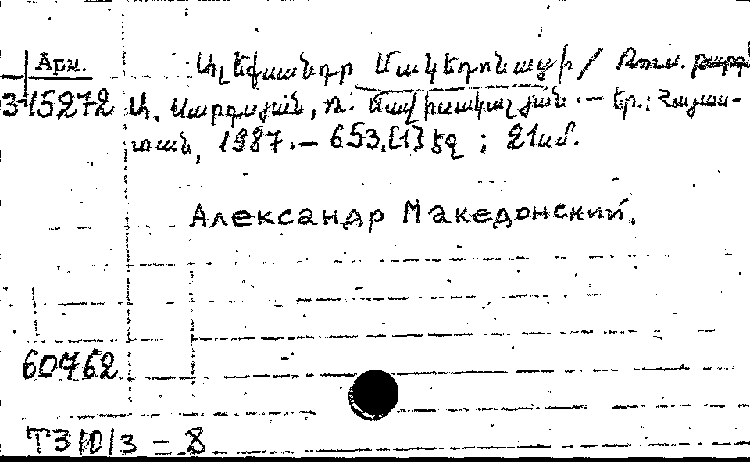 Арм.
Ալեքսանդր Մակեդոնացի / Ռուս. թարգմ.
3-15272 Ա. Սարգսյան, Ռ. — Եր.: Հայաս-
տան, 1987. — 653,[1] էջ ; 21 սմ.
Александр Македонский.
60762
ТЗ(0)3 - 8